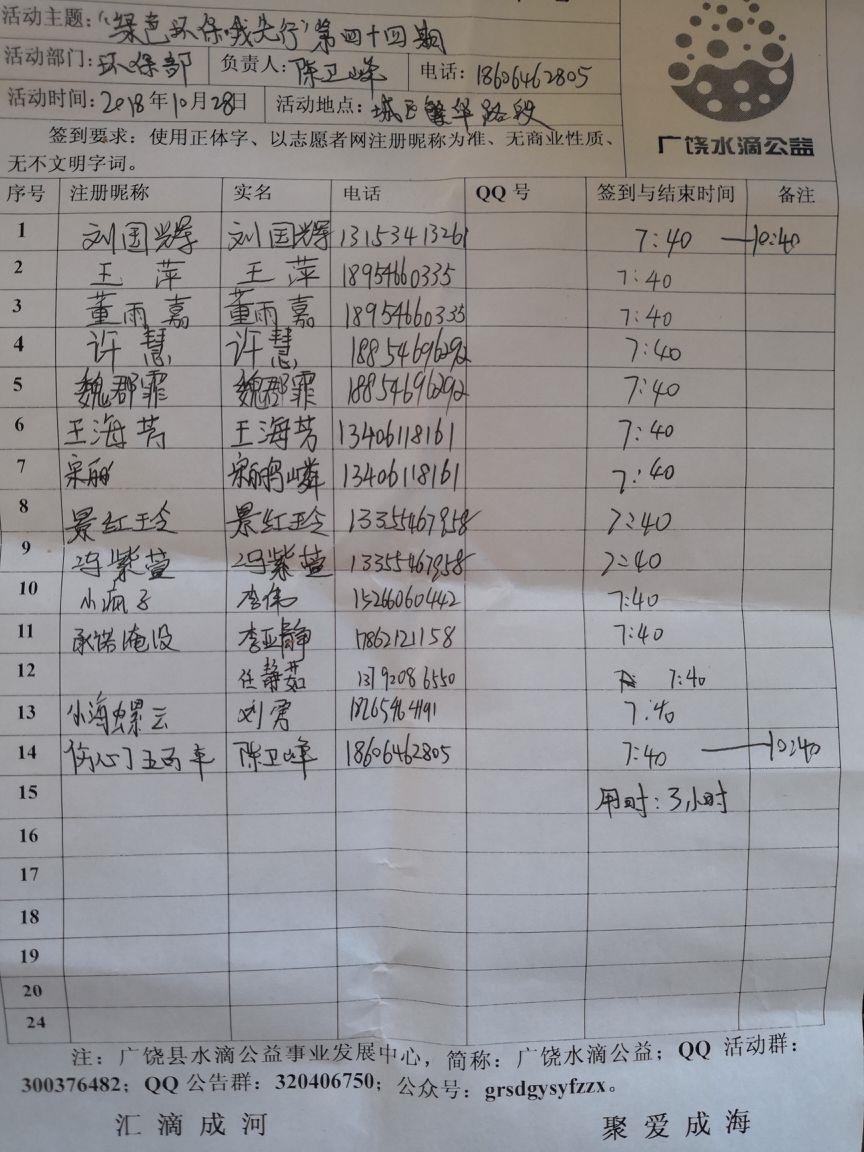 活动主题：“绿色环保我先行”第四十四期
活动部门：环保部 负责人：陈卫峰 电话：18606462805
活动时间：2018年10月28日 活动地点：城区繁华路段
广饶水滴公益
签到要求：使用正体字、以志愿者网注册昵称为准、无商业性质、
无不文明字词。
序号 注册昵称 实名 电话 QQ号 签到与结束时间 备注
1 刘国辉 刘国辉 13153413261 7:40 —10:40
2 王萍 王萍 18954660335 7:40
3 董雨嘉 董雨嘉 18954660335 7:40
4 许慧 许慧 18854696292 7:40
5 魏郡霏 魏郡霏 18854696292 7:40
6 王海芳 王海芳 13406118161 7:40
7 宋丽 宋鹏嶙 13406118161 7:40
8 景红玲 景红玲 13355467958 7:40
9 冯紫萱 冯紫萱 13355467958 7:40
10 小疯子 李伟 15266060442 7:40
11 承诺淹没 李亚静 17862121158 7:40
12 任静茹 13792086550 7:40
13 小海螺云 刘勇 18265464191 7:40
14 伤心丁五两车 陈卫峰 18606462805 7:40 —10:40
15 用时：3小时
16
17
18
19
20
24
注：广饶县水滴公益事业发展中心，简称：广饶水滴公益；QQ 活动群：
300376482；QQ 公告群：320406750；公众号：grsdgysyfzzx。
汇滴成河 聚爱成海